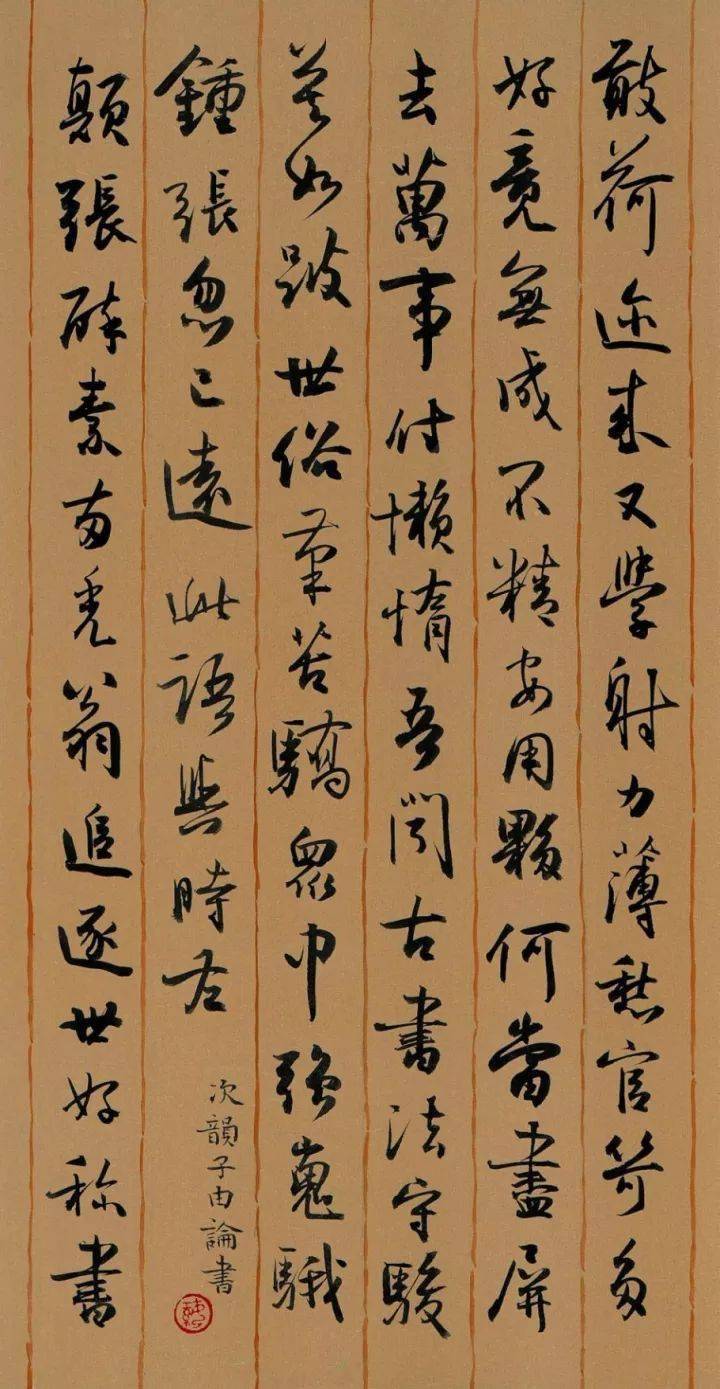 敢荷迩来又學射力薄愁官笴多
好竟無成不精安用夥何當盡屏
去萬事付懶惰吾聞古書法守駿
莫如跛世俗筆苦驕衆中強嵬騀
鍾張忽已遠此語與時左
次韻子由論書
顛張醉素兩禿翁追逐世好称書